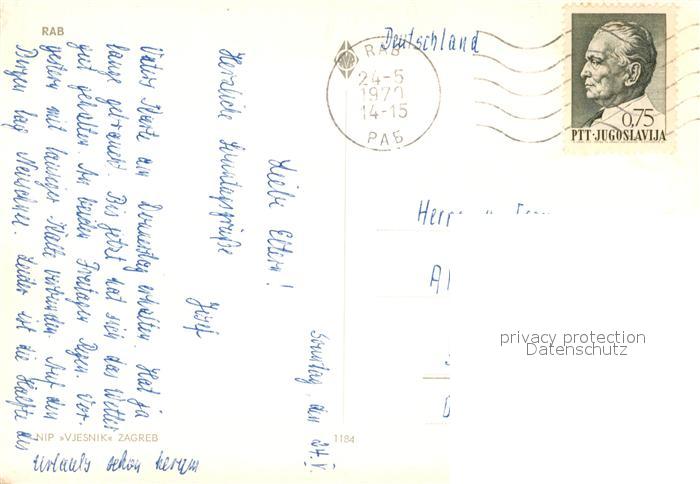 RAB
Deutschland
RAB
24-5
1970
14-15
РАБ
0,75
PTT·JUGOSLAVIJA
Sonntag, den 24.V.
Liebe Eltern!
Herzliche Sonntagsgrüße
Josef
Vaters Karte am Donnerstag erhalten. Hat ja
lange gebraucht. Bis jetzt hat sich das Wetter
gut gehalten. An beiden Freitagen Regen. Vor-
gestern mit lausiger Kälte verbunden. Auf den
Bergen lag Neuschnee. Leider ist die Hälfte des
Urlaubs schon herum
Herrn u.
NIP »VJESNIK« ZAGREB
1184
privacy protection
Datenschutz